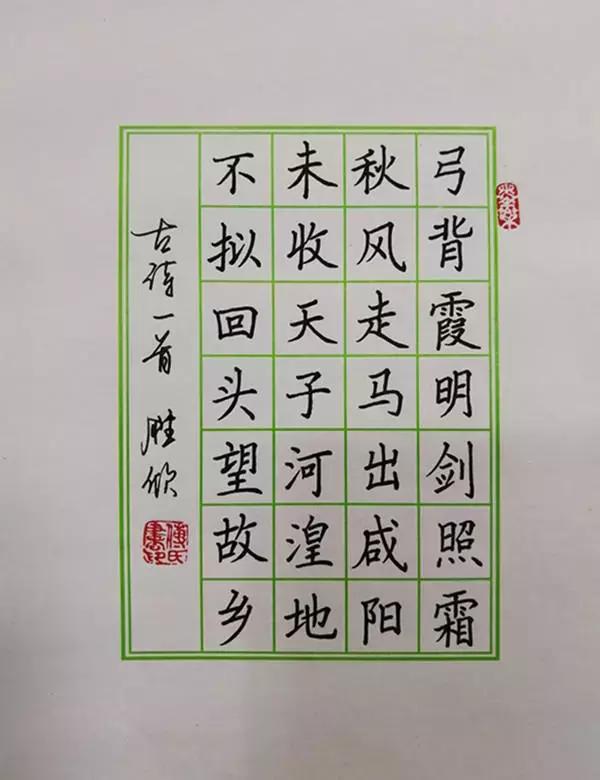 弓背霞明剑照霜
秋风走马出咸阳
未收天子河湟地
不拟回头望故乡
古诗一首 胜欣
傅氏书印